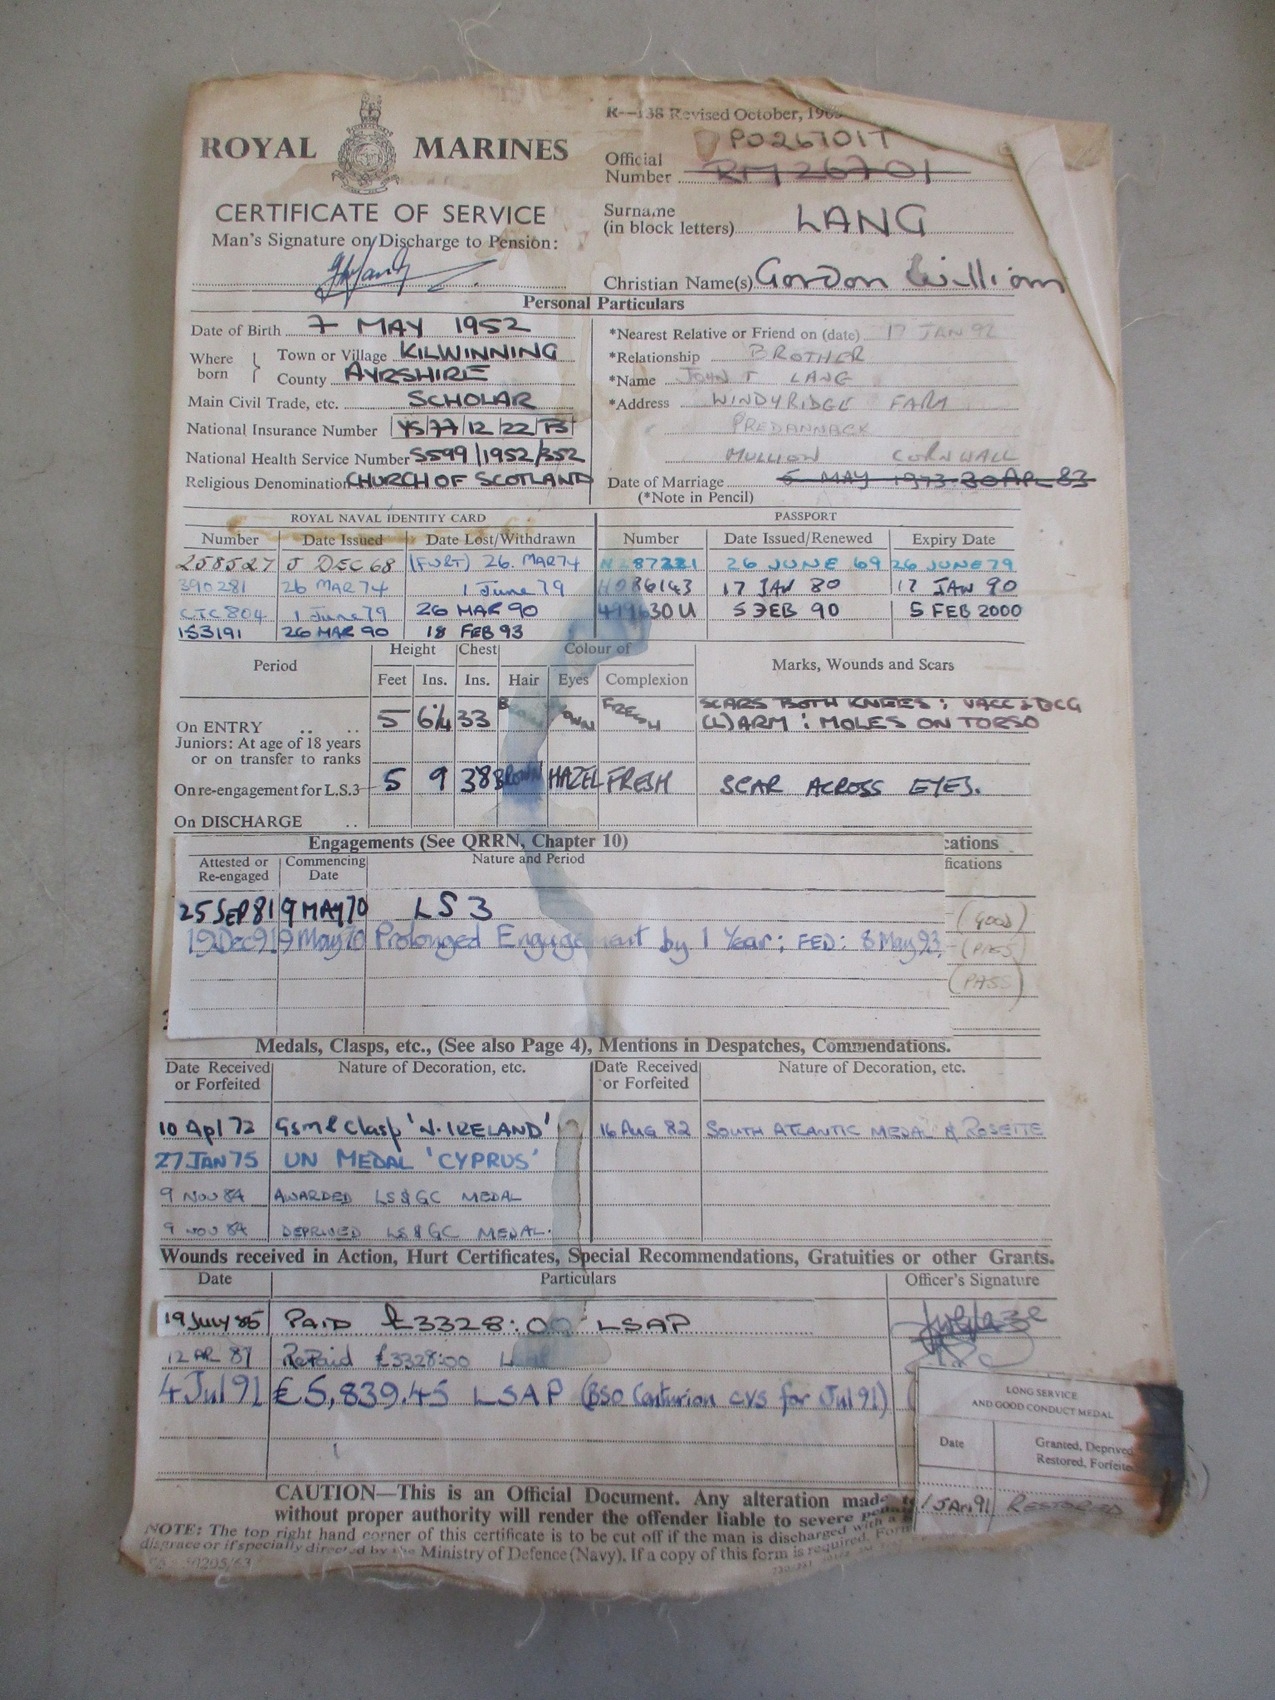 R—138 Revised October, 196
ROYAL MARINES
PO26701T
Official Number RM 26701
CERTIFICATE OF SERVICE
Surname (in block letters) LANG
Man's Signature on Discharge to Pension:
Christian Name(s) Gordon William
Personal Particulars
Date of Birth 7 MAY 1952
*Nearest Relative or Friend on (date) 17 JAN 92
Where born { Town or Village KILWINNING
*Relationship BROTHER
County AYRSHIRE
*Name JOHN T LANG
Main Civil Trade, etc. SCHOLAR
*Address WINDYRIDGE FARM
National Insurance Number YS/77/12/22/B
PREDANNACK
National Health Service Number S599/1952/352
MULLION CORNWALL
Religious Denomination CHURCH OF SCOTLAND
Date of Marriage 5 MAY 1973 30 APL 83
(*Note in Pencil)
ROYAL NAVAL IDENTITY CARD PASSPORT
Number Date Issued Date Lost/Withdrawn Number Date Issued/Renewed Expiry Date
258527 5 DEC 68 26 MAR 74 87221 26 JUNE 69 26 JUNE 79
390281 26 MAR 74 1 June 79 17 JAN 80 17 JAN 90
CTC 804 1 June 79 26 MAR 90 5 FEB 90 5 FEB 2000
153191 26 MAR 90 18 FEB 93
Period Height Chest Colour of Marks, Wounds and Scars
Feet Ins. Ins. Hair Eyes Complexion
On ENTRY 5 6¼ 33 FRESH SCARS BOTH KNEES; VACC & BCG
(L) ARM; MOLES ON TORSO
Juniors: At age of 18 years or on transfer to ranks
On re-engagement for L.S.3 5 9 38 BROWN HAZEL FRESH SCAR ACROSS EYES.
On DISCHARGE
Engagements (See QRRN, Chapter 10) cations
Attested or Re-engaged Commencing Date Nature and Period fications
25 SEP 81 9 MAY 70 LS 3 (GOOD)
19 Dec 91 9 May 70 Prolonged Engagement by 1 Year; FED: 8 May 93. (PASS)
(PASS)
Medals, Clasps, etc., (See also Page 4), Mentions in Despatches, Commendations.
Date Received or Forfeited Nature of Decoration, etc. Date Received or Forfeited Nature of Decoration, etc.
10 Apl 72 GSM & Clasp 'N. IRELAND' 16 Aug 82 SOUTH ATLANTIC MEDAL & ROSETTE
27 JAN 75 UN MEDAL 'CYPRUS'
9 NOV 84 AWARDED LS & GC MEDAL
9 NOV 84 DEPRIVED LS & GC MEDAL.
Wounds received in Action, Hurt Certificates, Special Recommendations, Gratuities or other Grants.
Date Particulars Officer's Signature
19 July 85 PAID £3328:00 LSAP
12 AR 87 RePaid £3328:00
4 Jul 91 £5,839.45 LSAP (BSO Centurion CVS for Jul 91)
LONG SERVICE
AND GOOD CONDUCT MEDAL
Date Granted, Deprived
Restored, Forfeite
1 JAN 91 RESTORED
CAUTION—This is an Official Document. Any alteration made
without proper authority will render the offender liable to severe
NOTE: The top right hand corner of this certificate is to be cut off if the man is discharged with a
disgrace or if specially directed by the Ministry of Defence (Navy). If a copy of this form is required, Form